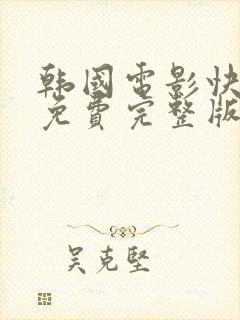 韩國電影快
免費完整版
吴克堅